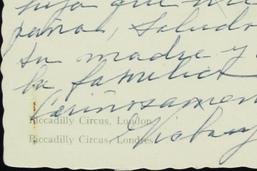 hija que
, saludo
su madre y
la familia
Cariñosamen
Piccadilly Circus, London
Piccadilly Circus, Londres